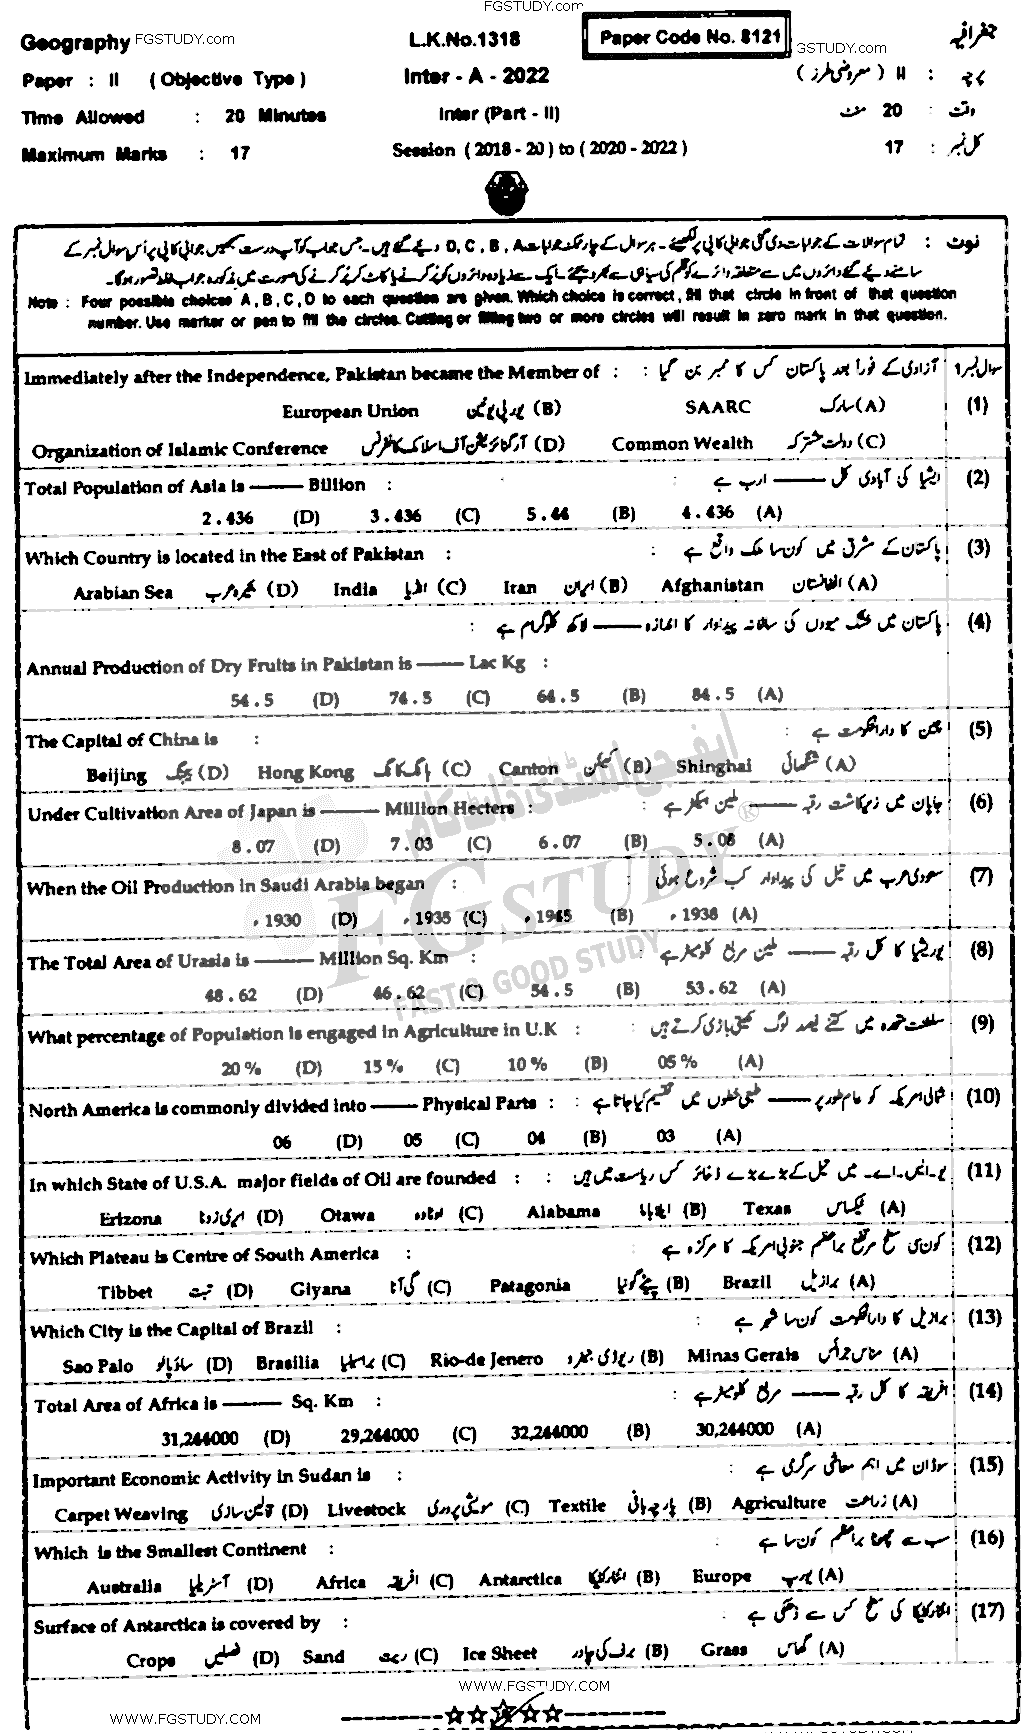 FGSTUDY.com
Geography FGSTUDY.com L.K.No.1318 Paper Code No. 8121 FGSTUDY.com جغرافیہ
Paper : II ( Objective Type ) Inter - A - 2022 پرچہ : II ( معروضی طرز )
Time Allowed : 20 Minutes Inter (Part - II) وقت : 20 منٹ
Maximum Marks : 17 Session ( 2018 - 20 ) to ( 2020 - 2022 ) کل نمبر : 17
نوٹ : تمام سوالات کے جوابات دی گئی جوابی کاپی پر لکھئے ۔ ہر سوال کے چار ممکنہ جوابات A ، B ، C ، D دئیے گئے ہیں ۔ جس جواب کو آپ درست سمجھیں جوابی کاپی پر اُس سوال نمبر کے
سامنے دئیے گئے دائروں میں سے متعلقہ دائرے کو قلم کی سیاہی سے بھر دیجئے ۔ ایک سے زیادہ دائروں کو پُر کرنے یا کاٹ کر پُر کرنے کی صورت میں مذکورہ جواب غلط تصور ہو گا ۔
Note : Four possible choices A , B , C , D to each question are given. Which choice is correct , fill that circle in front of that question
number. Use marker or pen to fill the circles. Cutting or filling two or more circles will result in zero mark in that question.
Immediately after the Independence, Pakistan became the Member of : آزادی کے فوراً بعد پاکستان کس کا ممبر بن گیا : سوال نمبر 1
European Union یورپی یونین (B) SAARC سارک (A) (1)
Organization of Islamic Conference آرگنائزیشن آف اسلامک کانفرنس (D) Common Wealth دولت مشترکہ (C)
Total Population of Asia is ——— Billion : ایشیا کی آبادی کل ——— ارب ہے : (2)
2.436 (D) 3.436 (C) 5.44 (B) 4.436 (A)
Which Country is located in the East of Pakistan : پاکستان کے مشرق میں کون سا ملک واقع ہے : (3)
Arabian Sea بحیرہ عرب (D) India انڈیا (C) Iran ایران (B) Afghanistan افغانستان (A)
پاکستان میں خشک میووں کی سالانہ پیداوار کا اندازہ ——— لاکھ کلوگرام ہے : (4)
Annual Production of Dry Fruits in Pakistan is ——— Lac Kg :
54.5 (D) 74.5 (C) 64.5 (B) 84.5 (A)
The Capital of China is : چین کا دارالحکومت ہے : (5)
Beijing بیجنگ (D) Hong Kong ہانگ کانگ (C) Canton کینٹن (B) Shinghai شنگھائی (A)
Under Cultivation Area of Japan is ——— Million Hecters : جاپان میں زیرکاشت رقبہ ——— ملین ہیکٹر ہے : (6)
8.07 (D) 7.03 (C) 6.07 (B) 5.08 (A)
When the Oil Production in Saudi Arabia began : سعودی عرب میں تیل کی پیداوار کب شروع ہوئی : (7)
1930ء (D) 1935ء (C) 1945ء (B) 1938ء (A)
The Total Area of Urasia is ——— Million Sq. Km : یوریشیا کا کل رقبہ ——— ملین مربع کلومیٹر ہے : (8)
48.62 (D) 46.62 (C) 54.5 (B) 53.62 (A)
What percentage of Population is engaged in Agriculture in U.K : سلطنت متحدہ میں کتنے فیصد لوگ کھیتی باڑی کرتے ہیں : (9)
20 % (D) 15 % (C) 10 % (B) 05 % (A)
North America is commonly divided into ——— Physical Parts : شمالی امریکہ کو عام طور پر ——— طبعی خطوں میں تقسیم کیا جاتا ہے : (10)
06 (D) 05 (C) 04 (B) 03 (A)
In which State of U.S.A. major fields of Oil are founded : یو ۔ ایس ۔ اے ۔ میں تیل کے بڑے بڑے ذخائر کس ریاست میں ہیں : (11)
Erizona ایری زونا (D) Otawa اوٹاوہ (C) Alabama ایلاباما (B) Texas ٹیکساس (A)
Which Plateau is Centre of South America : کون سی سطح مرتفع براعظم جنوبی امریکہ کا مرکز ہ ہے : (12)
Tibbet تبت (D) Giyana گی آنا (C) Patagonia پیٹے گونیا (B) Brazil برازیل (A)
Which City is the Capital of Brazil : برازیل کا دارالحکومت کون سا شہر ہے : (13)
Sao Palo ساؤ پالو (D) Brasilia براسیلیا (C) Rio-de Jenero ریوڈی جنیرو (B) Minas Gerais مناس جرائس (A)
Total Area of Africa is ——— Sq. Km : افریقہ کا کل رقبہ ——— مربع کلومیٹر ہے : (14)
31,244000 (D) 29,244000 (C) 32,244000 (B) 30,244000 (A)
Important Economic Activity in Sudan is : سوڈان میں اہم معاشی سرگرمی ہے : (15)
Carpet Weaving قالین سازی (D) Livestock مویشی پروری (C) Textile پارچہ بافی (B) Agriculture زراعت (A)
Which is the Smallest Continent : سب سے چھوٹا براعظم کون سا ہے : (16)
Australia آسٹریلیا (D) Africa افریقہ (C) Antarctica انٹارکٹیکا (B) Europe یورپ (A)
Surface of Antarctica is covered by : انٹارکٹیکا کی سطح کس سے ڈھکی ہے : (17)
Crops فصلیں (D) Sand ریت (C) Ice Sheet برف کی چادر (B) Grass گھاس (A)
ایف جی اسٹڈی ڈاٹ کام
FG STUDY ®
FAST & GOOD STUDY
WWW.FGSTUDY.COM
WWW.FGSTUDY.COM